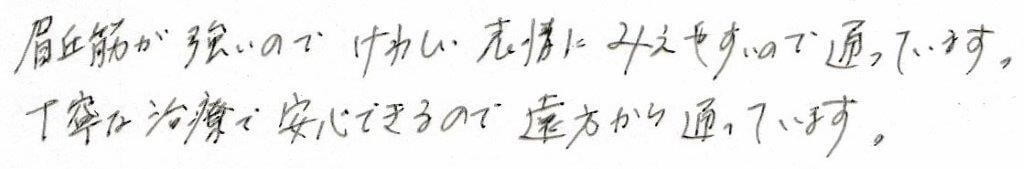 眉丘筋が強いので けわしい表情に みえやすいので通っています。
丁寧な治療で安心できるので遠方から通っています。